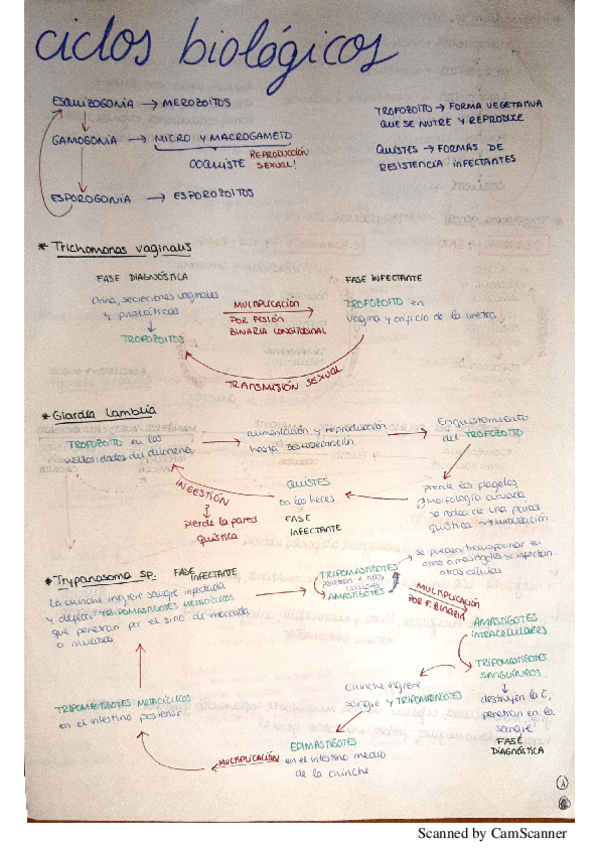 ciclos biológicos
ESQUIZOGONIA → MEROZOITOS
GAMOGONIA → MICRO Y MACROGAMETO
OOQUISTE REPRODUCCIÓN
SEXUAL!
ESPOROGONIA → ESPOROZOITOS
TROFOZOITO → FORMA VEGETATIVA
QUE SE NUTRE Y REPRODUCE
QUISTES → FORMAS DE
RESISTENCIA INFECTANTES
* Trichomonas vaginalis
FASE DIAGNÓSTICA
Orina, secreciones vaginales
y prostáticas
TROFOZOITOS
MULTIPLICACIÓN
POR FISIÓN
BINARIA LONGITUDINAL
FASE INFECTANTE
TROFOZOITO en
vagina y orificio de la uretra
TRANSMISIÓN SEXUAL
* Giardia lamblia
TROFOZOITO en las
vellosidades del duodeno
alimentación y reproducción
hasta DESHIDRATACIÓN
Enquistamiento
del TROFOZOITO
pierde los flagelos
morfología
se rodea de una pared
quística → MADURACIÓN
QUISTES
en las heces
FASE
INFECTANTE
INGESTIÓN
pierde la pared
quística
* Trypanosoma sp. FASE INFECTANTE
La chinche ingiere sangre infectada
y dejan TRIPOMASTIGOTES METACÍCLICOS
que penetran por el sitio de
o mucosas
TRIPOMASTIGOTES
penetran células
AMASTIGOTES
se pueden transformar en
otros amastigotes se infectan
otras células
MULTIPLICACIÓN
POR F. BINARIA
AMASTIGOTES
INTRACELULARES
TRIPOMASTIGOTES
SANGUÍNEOS
destruyen la C,
penetran en la
sangre
FASE
DIAGNÓSTICA
Chinche ingiere
sangre y TRIPOMASTIGOTES
EPIMASTIGOTES
en el intestino medio
de la chinche
MULTIPLICACIÓN
TRIPOMASTIGOTES METACÍCLICOS
en el intestino posterior
Scanned by CamScanner